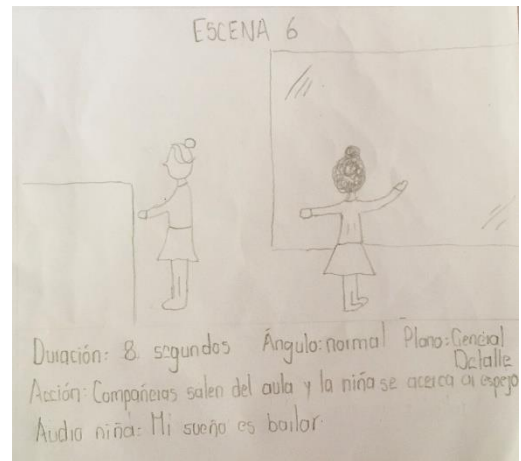 ESCENA 6
Duración: 8 segundos Ángulo: normal Plano: General
Detalle
Acción: Compañeras salen del aula y la niña se acerca al espejo
Audio niña: Mi sueño es bailar.